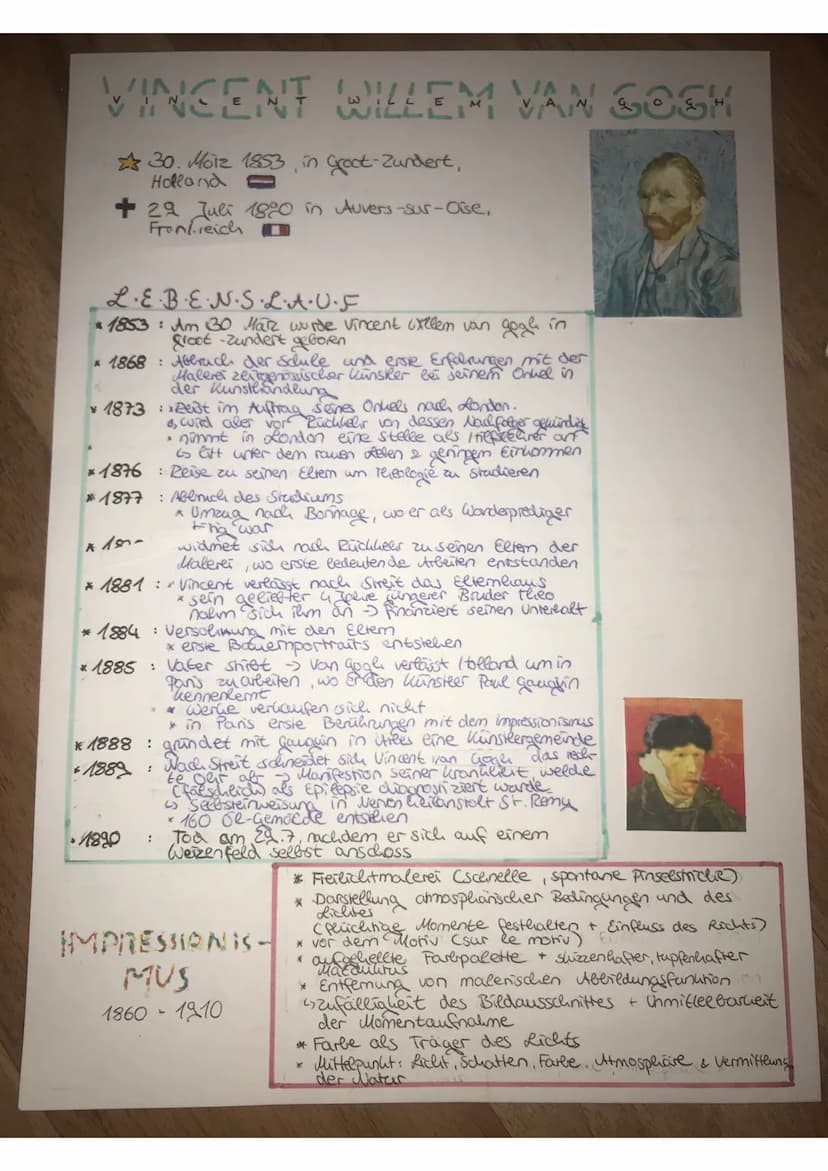 VINCENT WILLEM VAN GOGH
30. März 1853, in Groot-Zundert,
Holland
29. Juli 1890 in Auvers-sur-Oise,
Frankreich
L.E.B.E.N.S.L.A.U.F
* 1853 : Am 30 März wurde Vincent Willem van Gogh in
Groot-Zundert geboren
* 1868 : Abbruch der Schule und erste Erfahrungen mit der
Malerei zeitgenössischer Künstler bei seinem Onkel in
der Kunsthandlung
* 1873 : * reist im Auftrag seines Onkels nach London.
↳ wird aber vor Rückkehr von dessen Nachfolger gekündigt
* nimmt in London eine Stelle als Hilfslehrer an
↳ litt unter dem rauen Leben & geringem Einkommen
* 1876 : Reise zu seinen Eltern um Theologie zu studieren
* 1877 : Abbruch des Studiums
* Umzug nach Borinage, wo er als Wanderprediger
tätig war
* widmet sich nach Rückkehr zu seinen Eltern der
Malerei, wo erste bedeutende Arbeiten entstanden
* 1881 : * Vincent verlässt nach Streit das Elternhaus
* sein geliebter 4 Jahre jüngerer Bruder Theo
nahm sich ihm an -> finanziert seinen Unterhalt
* 1884 : Versöhnung mit den Eltern
* erste Bauernportraits entstehen
* 1885 : Vater stirbt -> Van Gogh verlässt Holland um in
Paris zu arbeiten, wo er den Künstler Paul Gauguin
kennenlernt
* Werke verkaufen sich nicht
* in Paris erste Berührungen mit dem Impressionismus
* 1888 : gründet mit Gauguin in eine Künstlergemeinde
* 1889 : Nach Streit schneidet sich Vincent van Gogh das rech-
te Ohr ab -> Manifestion seiner Krankheit, welche
(fälschlich) als Epilepsie diagnostiziert wurde
↳ Selbsteinweisung in Nervenheilanstalt St. Remy
* 160 Öl-Gemälde entstehen
* 1890 : Tod am 29.7, nachdem er sich auf einem
Weizenfeld selbst anschoss
IMPRESSIONIS-
MUS
1860 - 1910
* Freilichtmalerei (schnelle, spontane Pinselstriche)
* Darstellung atmosphärischer Bedingungen und des
Lichtes
(flüchtige Momente festhalten + Einfluss des Lichts)
* vor dem Motiv (sur le motiv)
* aufgehellte Farbpalette + skizzenhafter, tupfenhafter
Malduktus
* Entfernung von malerischen Abbildungsfunktion
↳ Zufälligkeit des Bildausschnittes + Unmittelbarkeit
der Momentaufnahme
* Farbe als Träger des Lichts
* Mittelpunkt: Licht, Schatten, Farbe, Atmosphäre & Vermittlung
der Natur